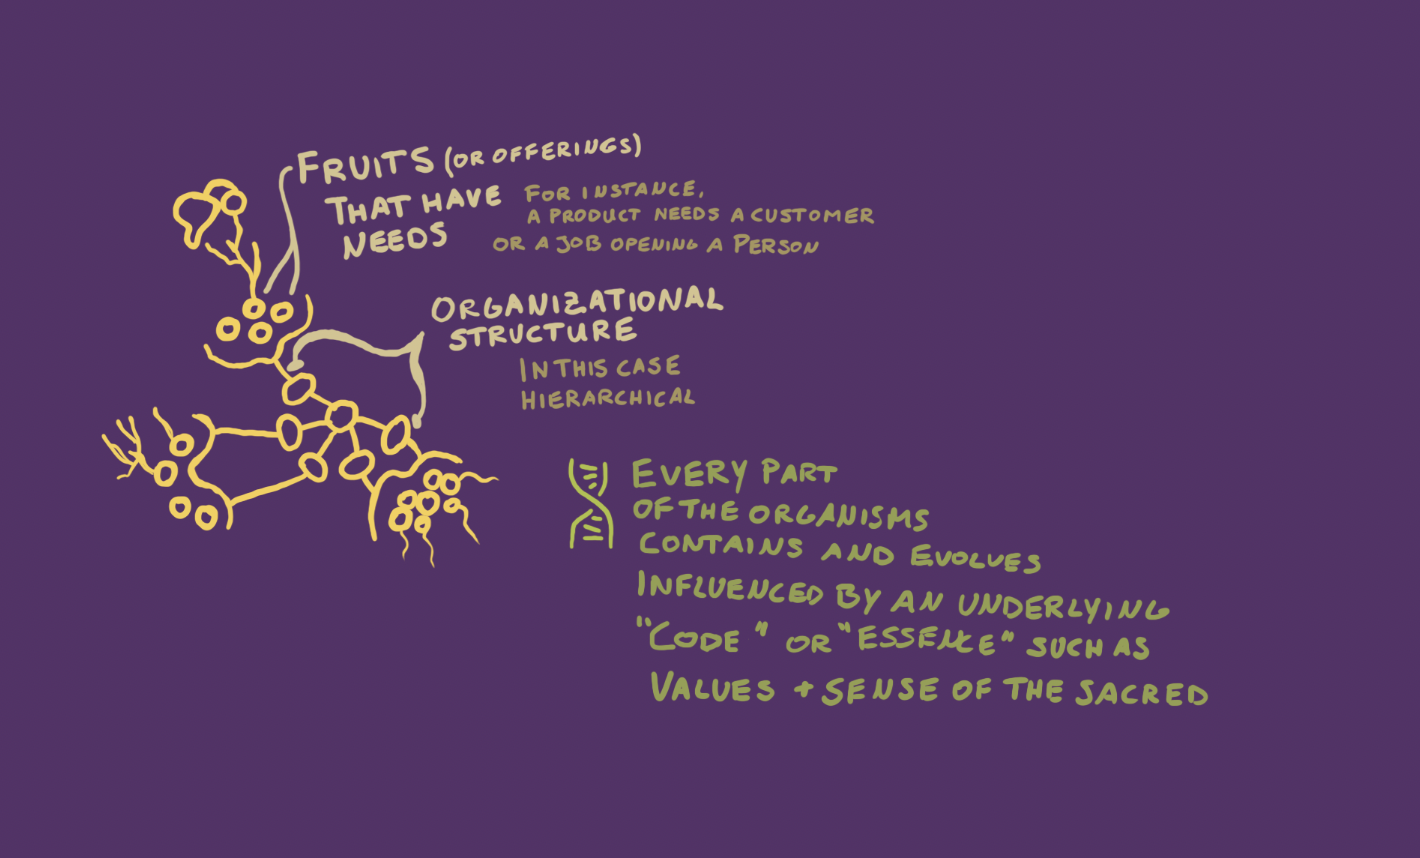 FRUITS (OR OFFERINGS)
THAT HAVE
NEEDS
FOR INSTANCE,
A PRODUCT NEEDS A CUSTOMER
OR A JOB OPENING A PERSON
ORGANIZATIONAL
STRUCTURE
IN THIS CASE
HIERARCHICAL
EVERY PART
OF THE ORGANISMS
CONTAINS AND EVOLVES
INFLUENCED BY AN UNDERLYING
"CODE" OR "ESSENCE" SUCH AS
VALUES + SENSE OF THE SACRED